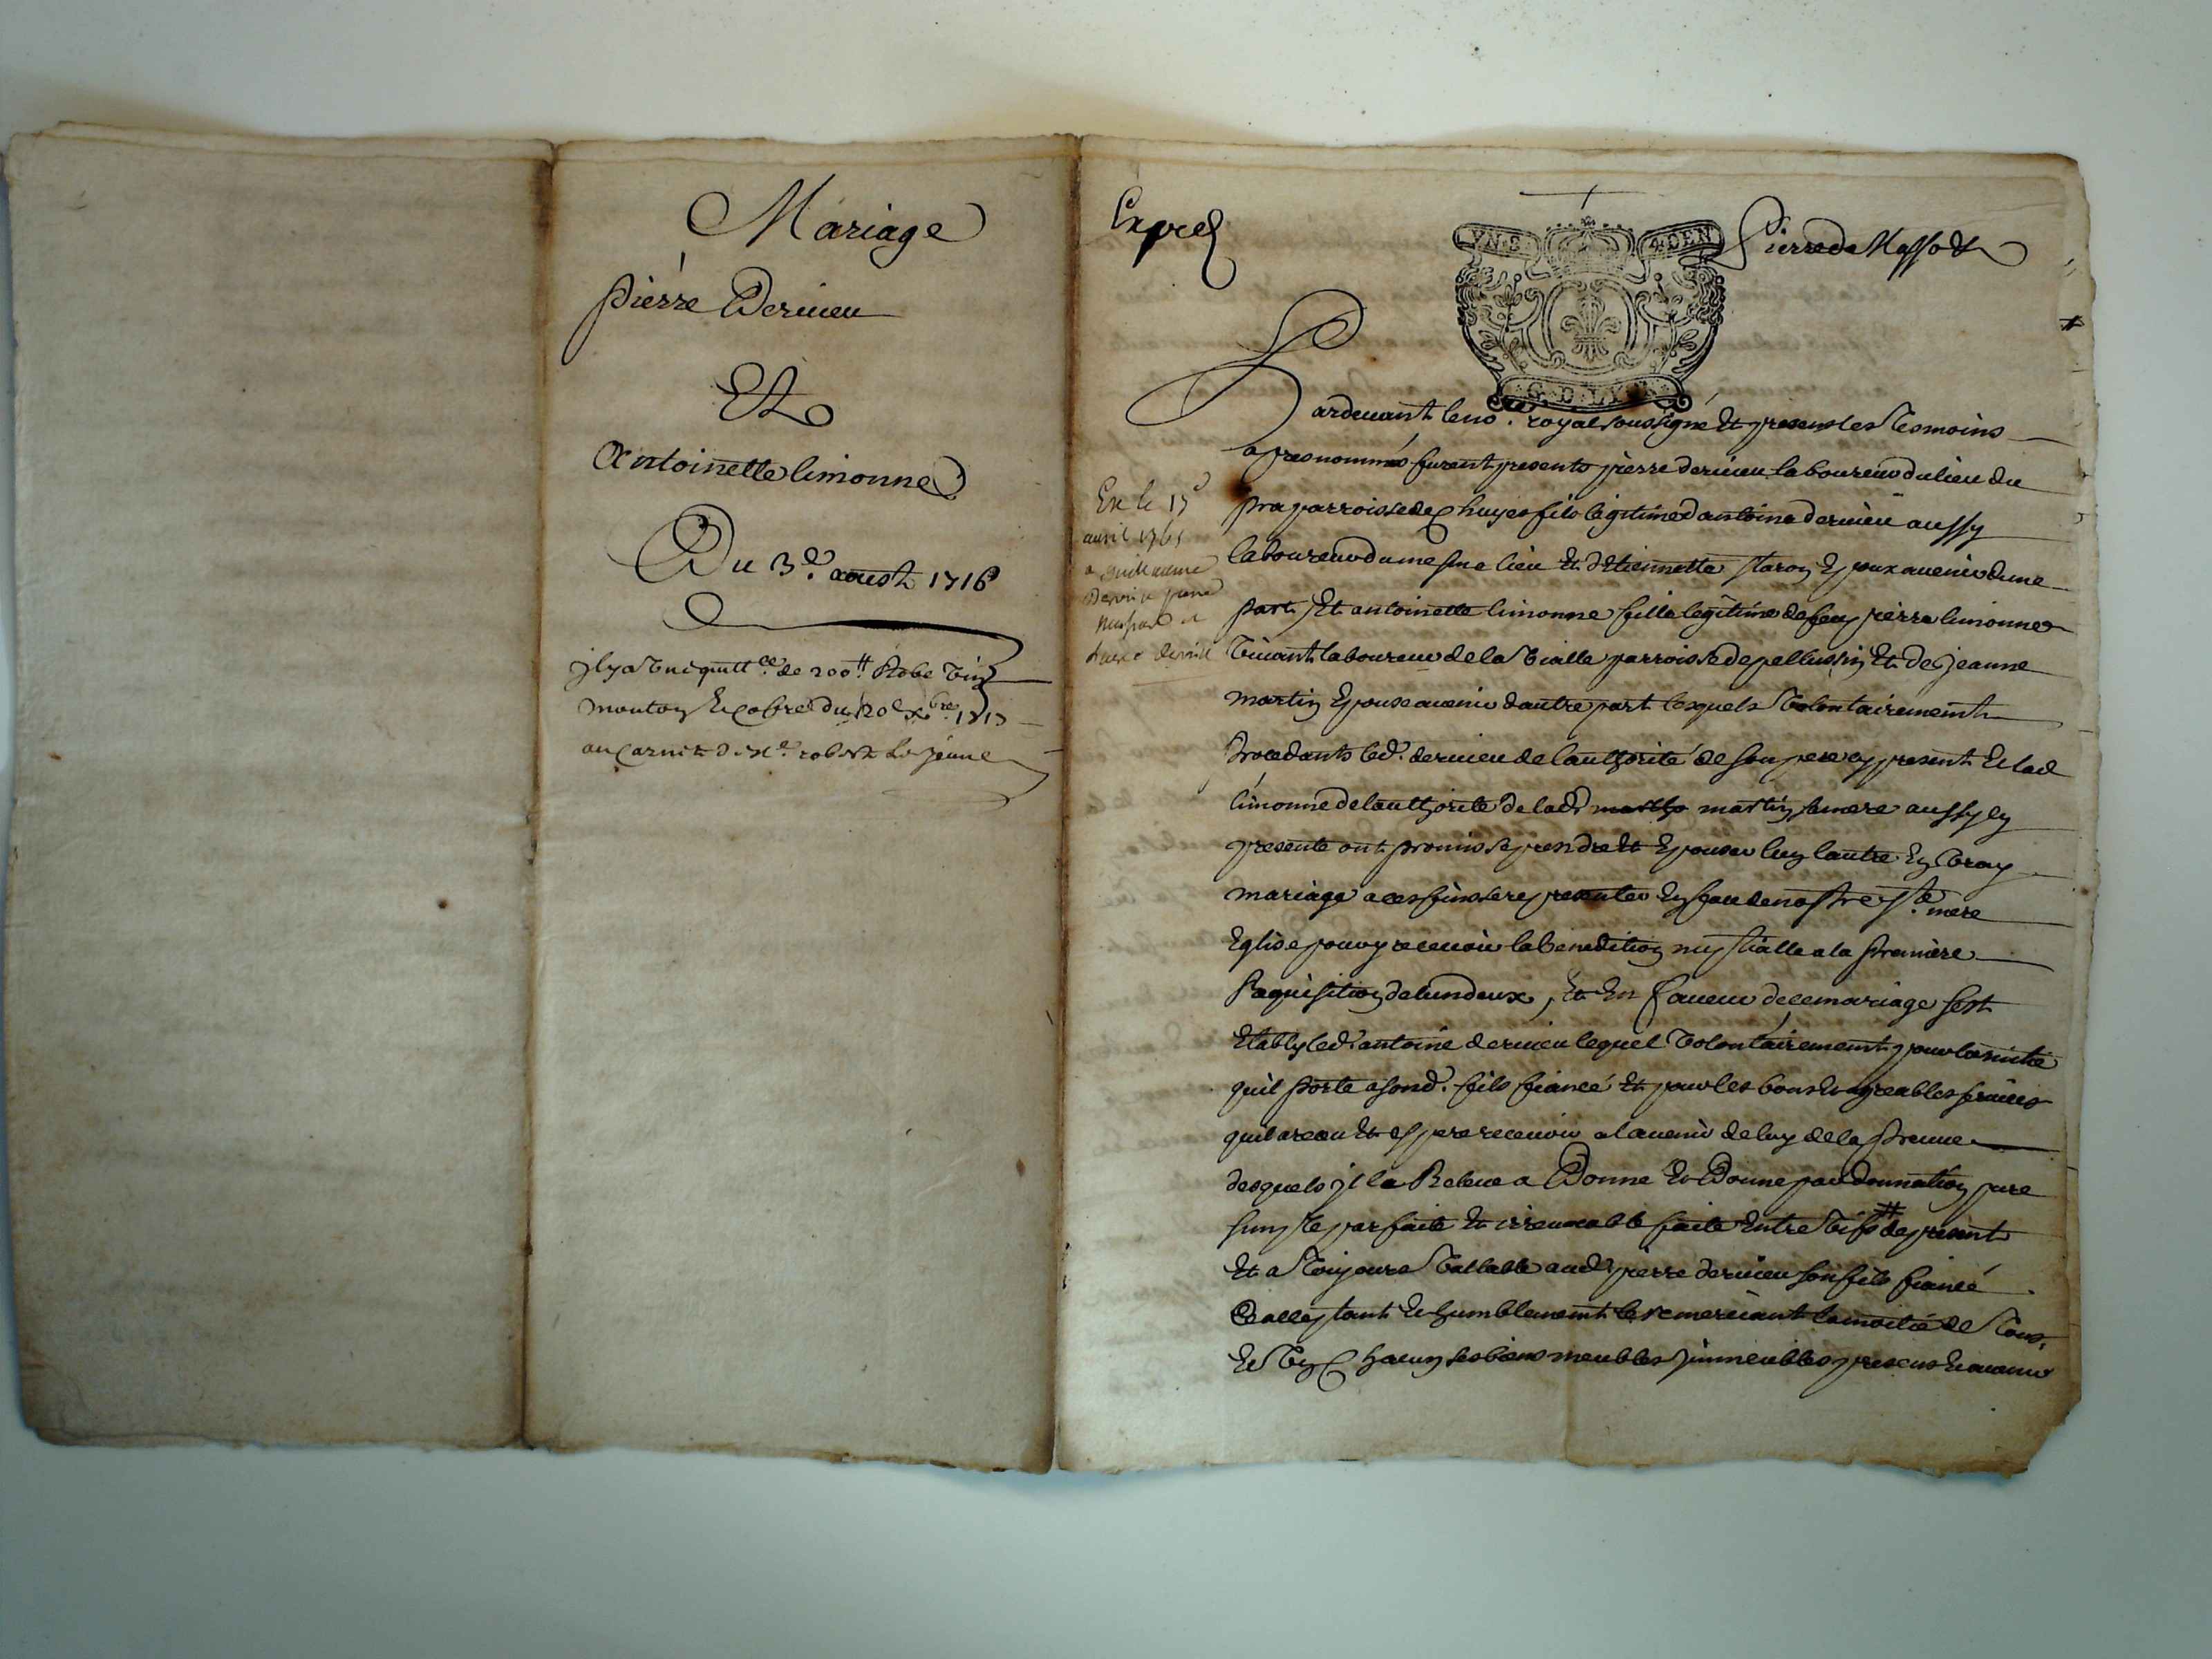 Mariage
pierre Derieu
Et
Antoinette limonne
Du 3e. aoust 1716
jl ya un quittce. de 200tt Robe
mouton du 20e xbre. 1717
au carnet de Me. robert le jeune
Expéd
Pierre de
G. D. LYON
Ex le 15
avril 1761
a guillaume
Pardevant le no.re royal soussigné Et presens les Tesmoins
apres nommés furent presents pierre derieu laboureur du lieu du
pra parroisse de Chuyes fils legitime d'antoine derieu aussy
laboureur du mesme lieu Et d'Etiennette staron Epoux avenir dune
part, Et antoinette limonne fille legitime de feu pierre limonne
vivant laboureur de la Vialle parroisse de pellussin Et de jeanne
martin Epouse avenir dautre part lesquels Volontairement
procedants led. derieu de lauthorité de son pere cy present Et lad
limonne de lauthorité de lad. martin sa mere aussy cy
presente ont promis se prendre Et Epouser lun lautre En Vray
mariage a ces fins se representer En face de nostre ste. mere
Eglise pour y recevoir la benediction nuptialle a la premiere
Requisition de lun deux, Et En faveur de ce mariage sest
Etably led. antoine derieu lequel Volontairement pour lamitié
quil porte a sond. fils fiancé Et pour les bons Et agreables services
quil a receu Et espere recevoir a lavenir de luy de la preuve
desquels jl la Releve a Donné Et Donne par donnation pure
simple parfaite Et irrevocable faite Entre vifs de present
Et a Toujours Vallable aud. pierre derieu son fils fiancé
acceptant Et humblement le remerciant la moitié de Tous
Et Un Chacun ses biens meubles jmmeubles presens Et avenir